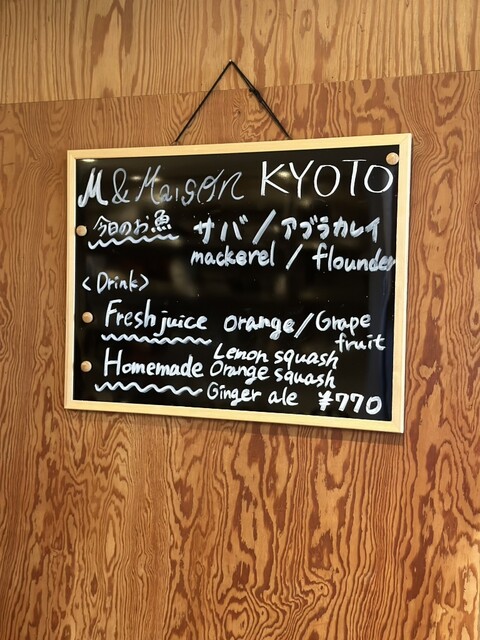 M & Maison KYOTO
今日のお魚 サバ / アブラカレイ
mackerel / flounder
<Drink>
Fresh juice orange / Grape
fruit
Homemade Lemon squash
Orange squash
Ginger ale ¥770